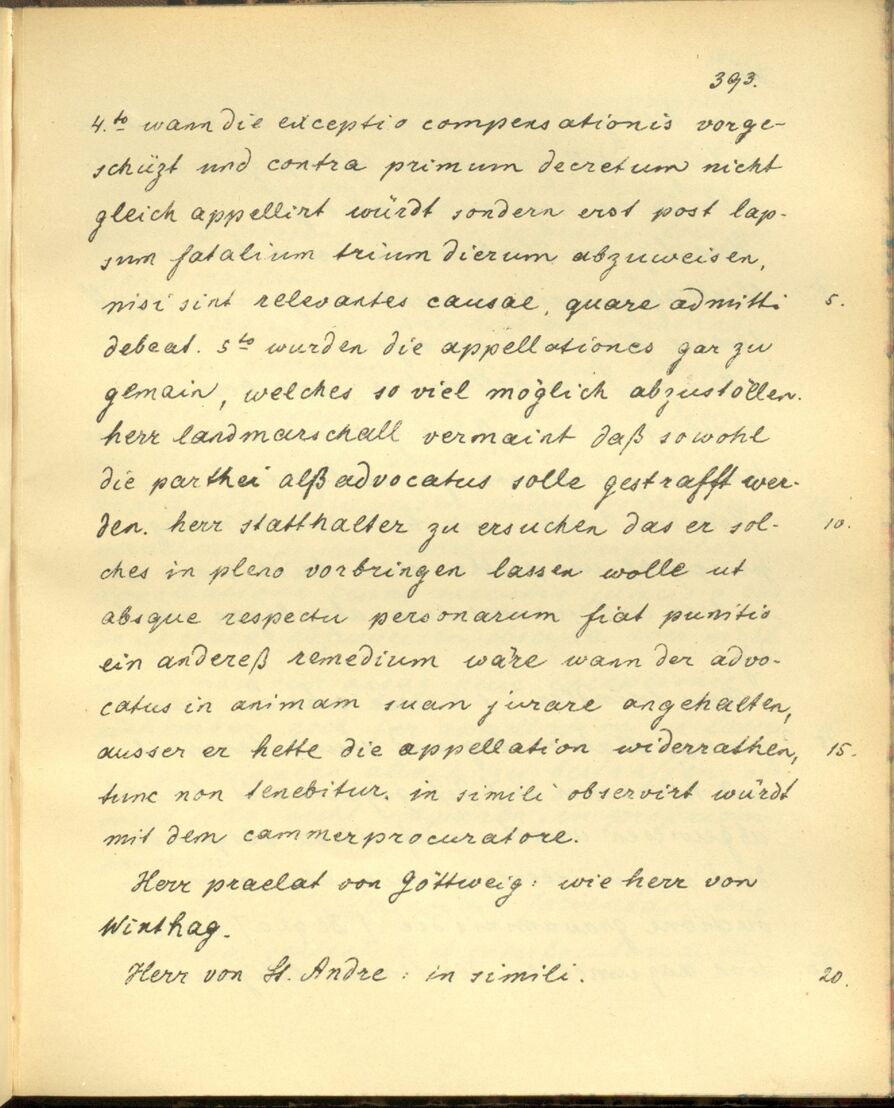 393.
4.to wann die exceptio compensationis vorge-
schüzt und contra primum decretum nicht
gleich appellirt würdt sondern erst post lap-
sum fatalium trium dierum abzuweisen,
nisi sint relevantes causae, quare admitti 5.
debeat. 5to wurden die appellationes gar zu
gemain, welches so viel möglich abzustöllen.
herr landmarschall vermaint daß sowohl
die parthei alß advocatus solle gestrafft wer-
den. herr statthalter zu ersuchen das er sol- 10.
ches in pleno vorbringen lassen wolle ut
absque respectu personarum fiat punitio
ein andereß remedium wäre wann der advo-
catus in animam suam jurare angehalten,
ausser er hette die appellation widerrathen, 15.
tunc non tenebitur. in simili observirt würdt
mit dem cammerprocuratore.
Herr praelat von Göttweig: wie herr von
Winthag.
Herr von St. Andre: in simili. 20.